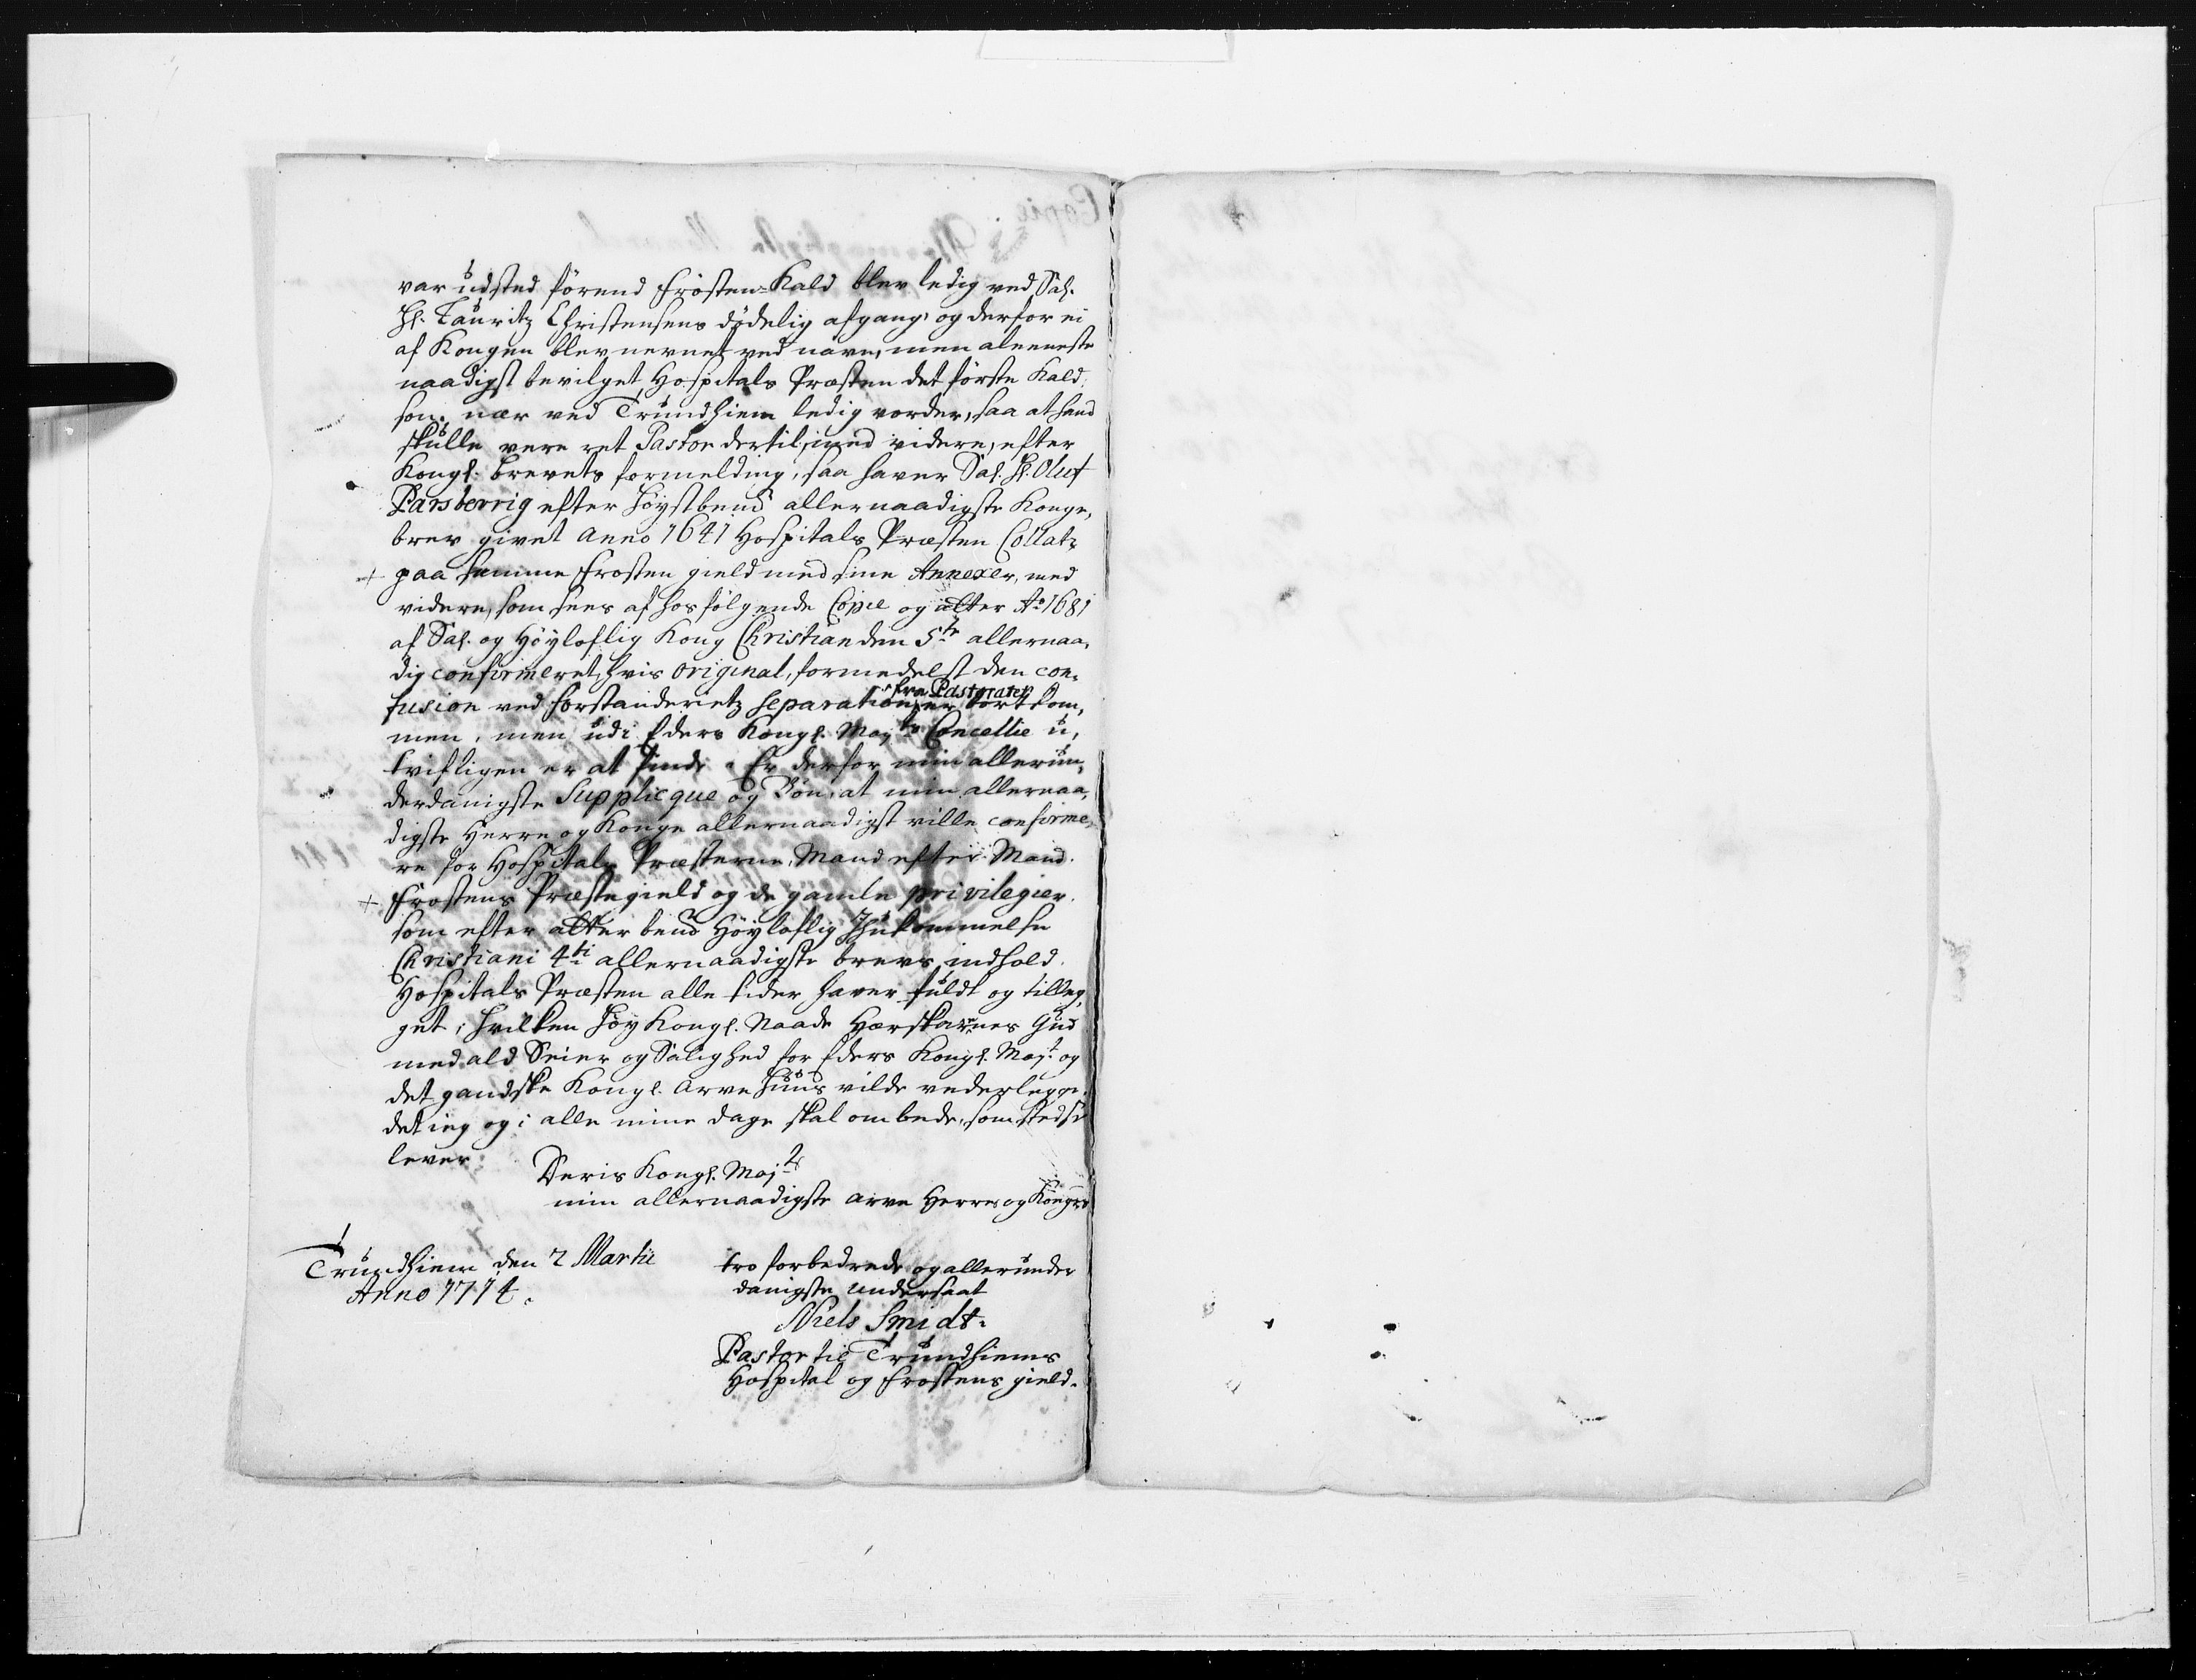 var udsted förend Frosten-Kald blev ledig ved Sal.
Hr. Lauritz Christensens dödelig afgang, og derfor ei
af Kongen blev nevnet ved navn, men aleeneste
naadigst bevilget Hospitals Præsten det förste Kald,
som nær ved Trundhiem ledig vorder, saa at hand
skulle vere ret Pastor dertil, med videre, efter
Kongl. brevets formelding, saa haver Sal. Hr. Oluf
Parsberrig efter höystbend allernaadigste Konge,
brev givet Anno 1641 Hospitals Præsten Collatz
+ paa samme Frosten gield med sine Annexer, med
videre, som sees af hosfølgende Copie og atter Ao 1681
af Sal. og Höyloflig Kong Christian den 5te allernaa,
dig confirmeret, hvis original, formedelst den con,
fusion ved forstanderetz separation fra Pastorater er bortkom,
men, men udi Eders Kongl. Majts Cancellie u,
tvifligen er at finde. Er derfor min allerun,
derdanigste Supplicque og Bön, at min allernaa,
digste Herre og Konge allernaadigst ville confirme,
re for Hospitals Præsterne, Mand efter Mand.
+ Frostens Præstegield og de gamle privilegier.
som efter atter bend Höyloflig Ihukommelse
Christiani 4ti allernaadigste brevs indhold.
Hospitals Præsten alle tider haver fuldt og tilleg,
get; hvilken höy Kongl. Naade Hærskarenes Gud
med ald Seier og Salighed for Eders Kongl. Majt og
det gandske Kongl. Arve huus vilde vederlegge.
det ieg og i alle mine dage skal ombede, som stedse
lever
Deris Kongl. Majts
min allernaadigste Arve Herres og Konges
Trundhiem den 2 Martii
Anno 1714.
tro forbedende og allerunder
danigste undersaat
Niels Smidt.
Pastor til Trundhiems
Hospital og Frostens gield.